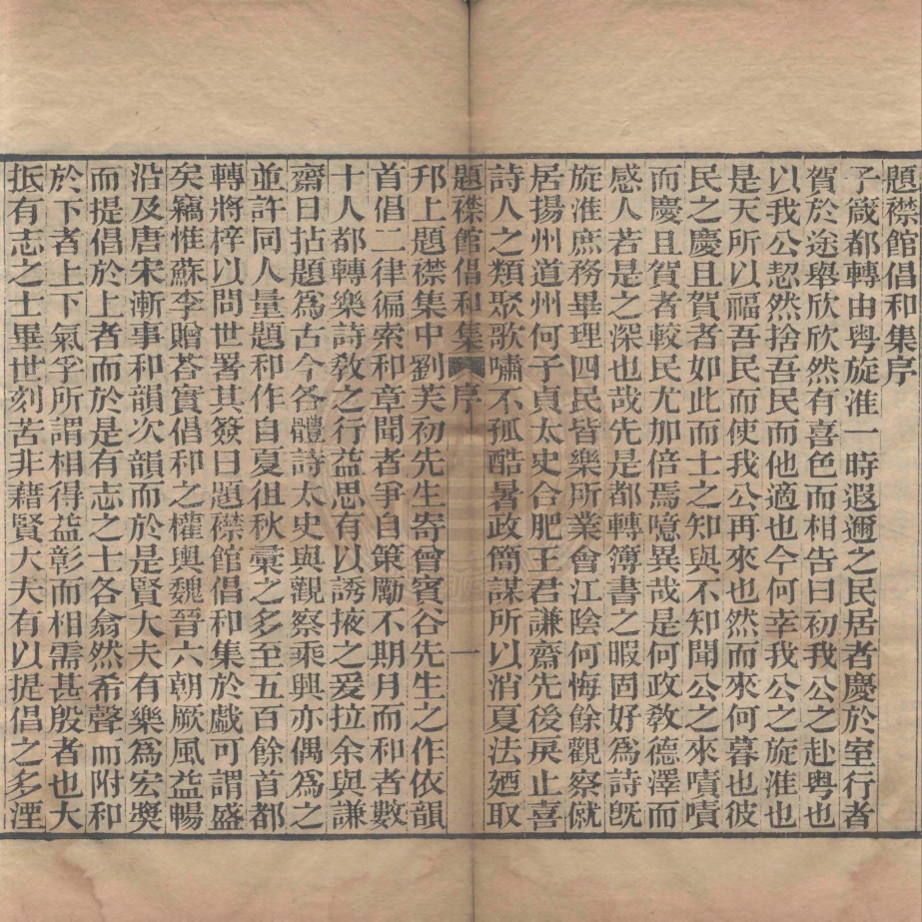 題襟館倡和集序
子箴都轉由粤旋淮一時遐邇之民居者慶於室行者
賀於途舉欣欣然有喜色而相告曰初我公之赴粤也
以我公恝然捨吾民而他適也今何幸我公之旋淮也
是天所以福吾民而使我公再來也然而來何暮也彼
民之慶且賀者如此而士之知與不知聞公之來嘖嘖
而慶且賀者較民尤加倍焉噫異哉是何政敎德澤而
感人若是之深也哉先是都轉簿書之暇固好爲詩旣
旋淮庶務畢理四民皆樂所業會江陰何悔餘觀察僦
居揚州道州何子貞太史合肥王君謙齋先後戾止喜
詩人之類聚歌嘯不孤酷暑政簡謀所以消夏法廼取
題襟館倡和集 序 一
邘上題襟集中劉芙初先生寄曾賓谷先生之作依韻
首倡二律徧索和章聞者爭自策勵不期月而和者數
十人都轉樂詩敎之行益思有以誘掖之爰拉余與謙
齋日拈題爲古今各體詩太史與觀察乘興亦偶爲之
並許同人量題和作自夏徂秋彚之多至五百餘首都
轉將梓以問世署其簽曰題襟館倡和集於戲可謂盛
矣竊惟蘇李贈荅實倡和之權輿魏晉六朝厥風益暢
沿及唐宋漸事和韻次韻而於是賢大夫有樂爲宏奬
而提倡於上者而於是有志之士各翕然希聲而附和
於下者上下氣孚所謂相得益彰而相需甚殷者也大
抵有志之士畢世刻苦非藉賢大夫有以提倡之多湮